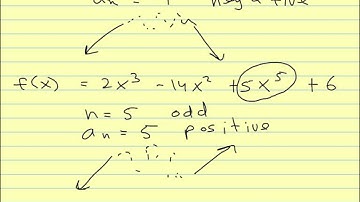 an = negative
f(x) = 2x³ - 14x² + 5x⁵ + 6
n = 5 odd
an = 5 positive